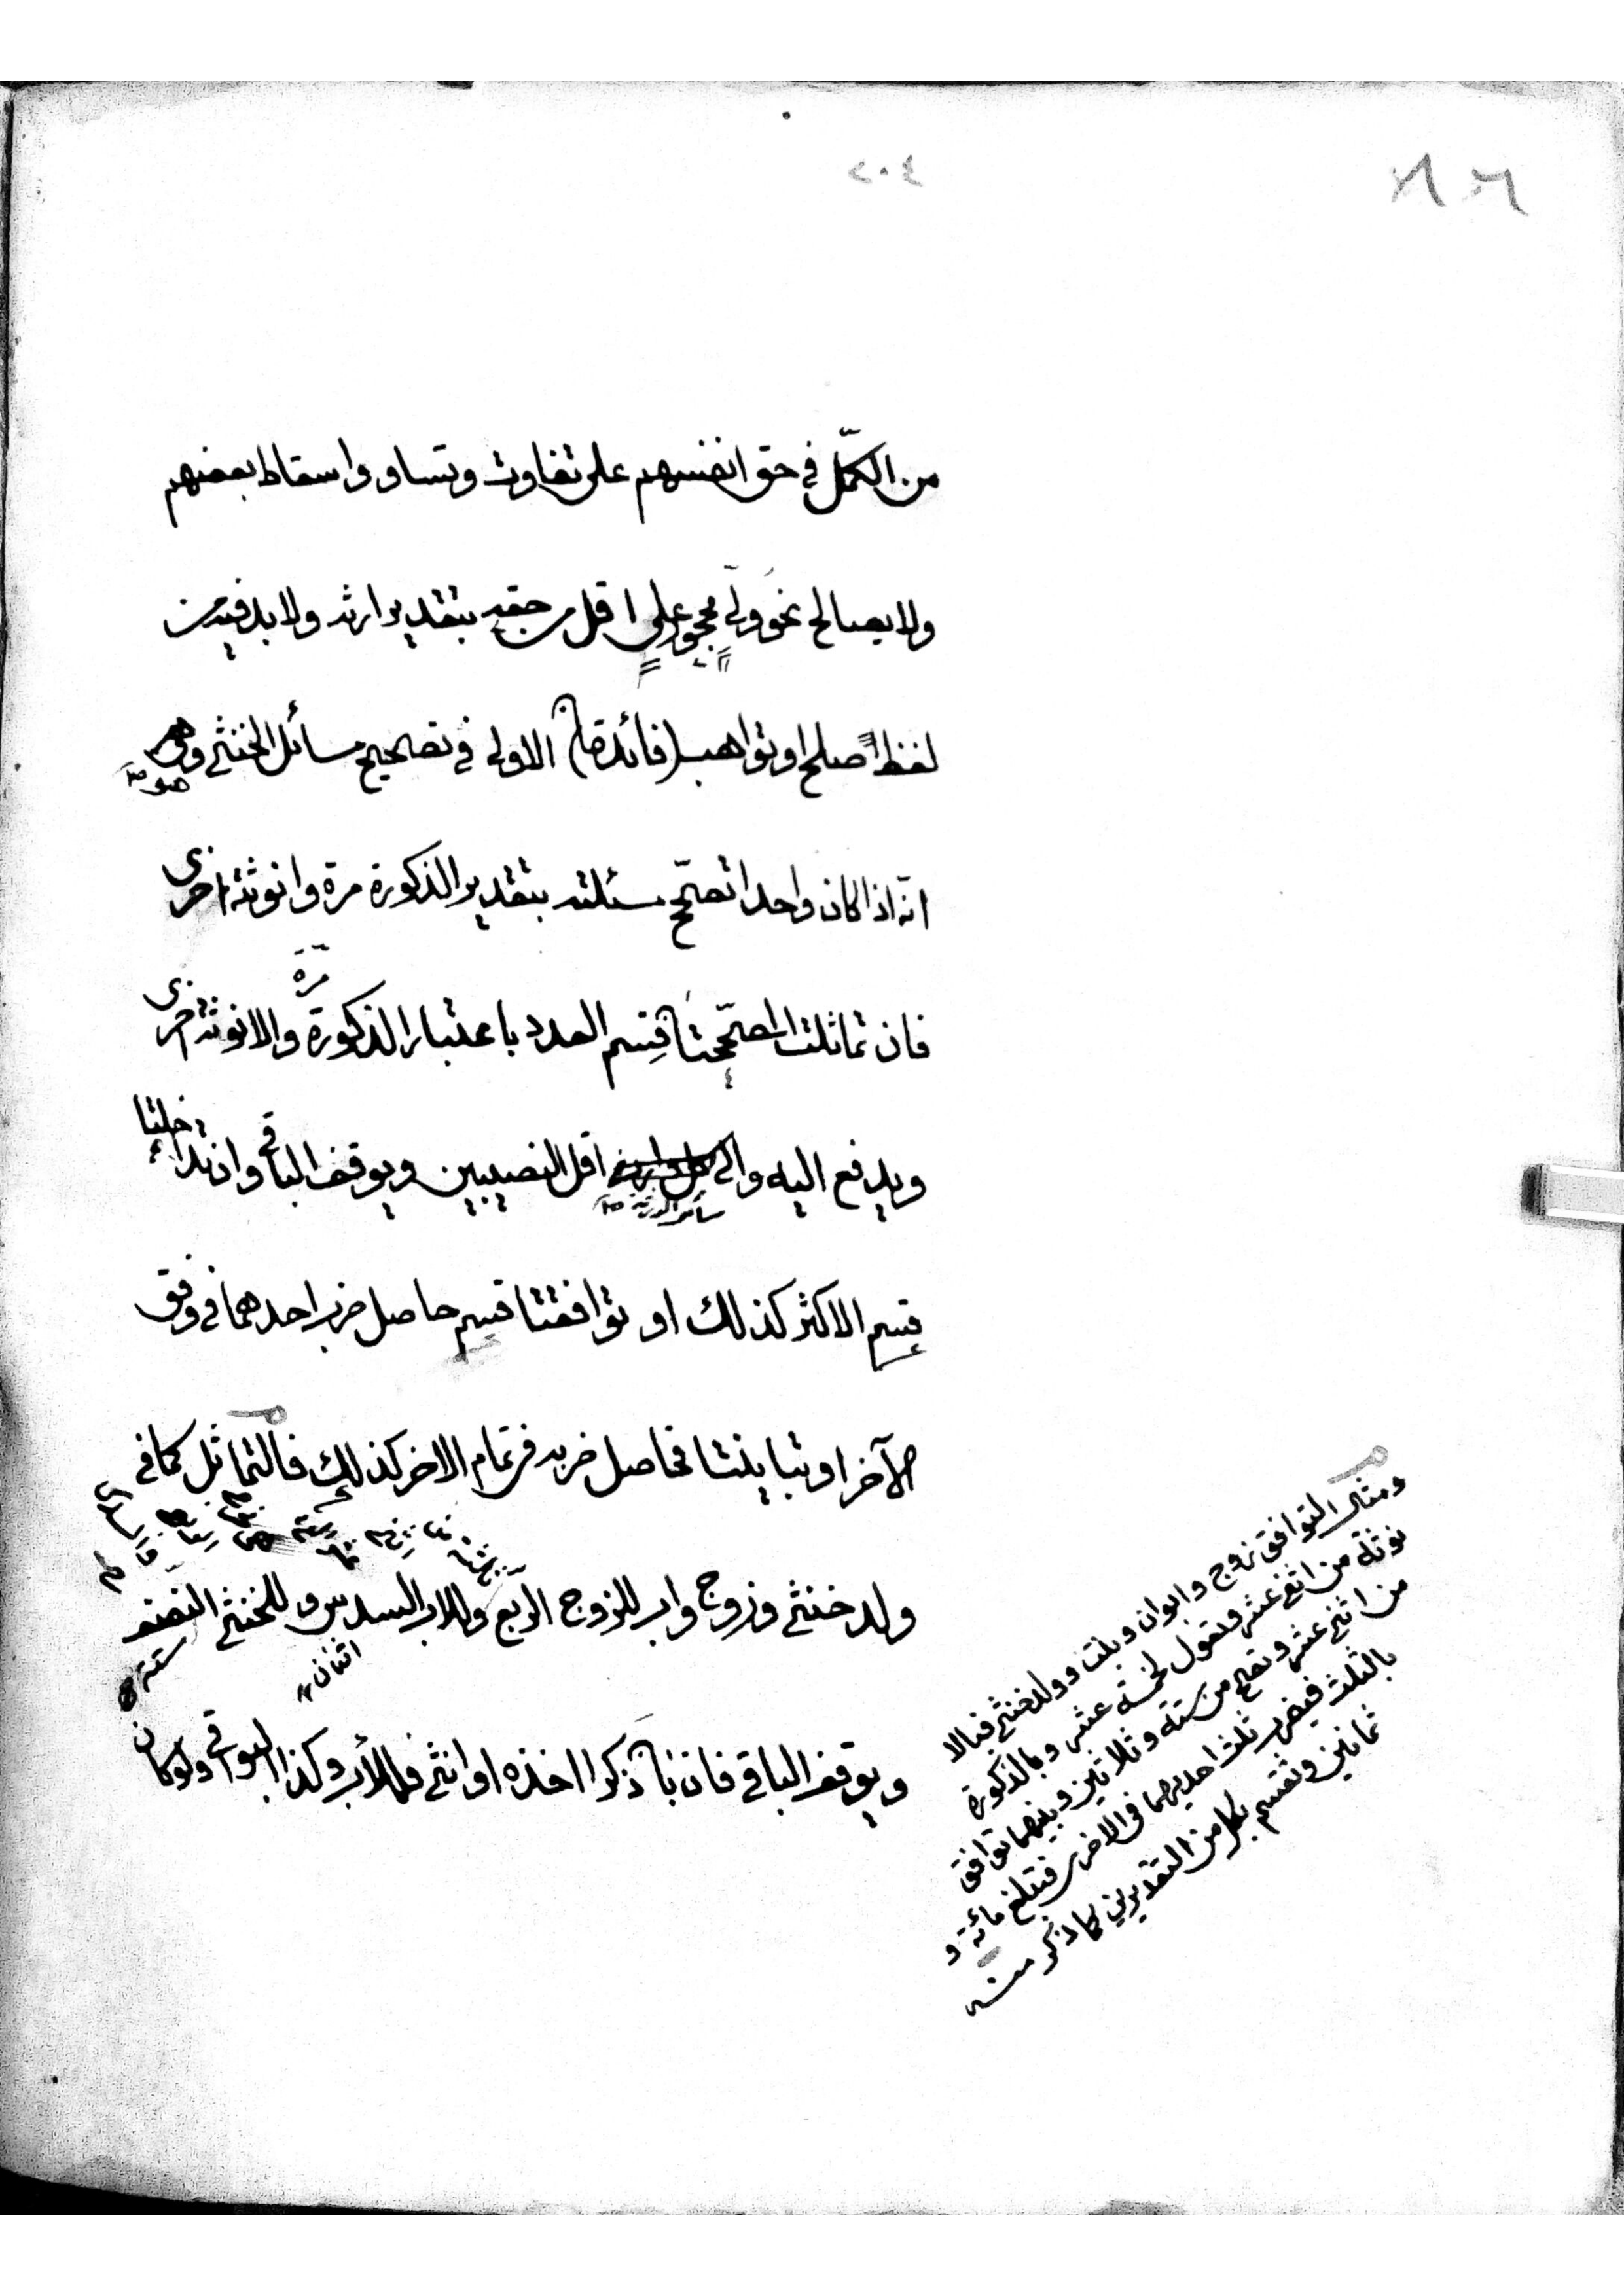 ٢٠٤
من الكمّل في حق انفسهم على تفاوت وتساو واسقاط بعضهم
ولا يصالح نحو ولي محجور على اقل من حقه بتقدير ارثه ولا بد فيه من
لفظ صلح او تواهب (فائدة) الاولى في تصحيح مسائل الخنثى وهو
انه اذا كان واحدا تصحّح مسئلته بتقدير الذكورة مرة وانوثة اخرى
فان تماثلت المصحّحتان قسم العدد باعتبار الذكورة مرة والانوثة اخرى
ويدفع اليه والى سائر الورثة اقل النصيبين ويوقف الباقي وان تداخلتا
قسم الاكثر كذلك او توافقتا قسم حاصل ضرب احدهما في وفق
الآخر او تباينتا فحاصل ضربه في تمام الاخر كذلك فالتماثل كما في
ولد خنثى وزوج واب للزوج الربع وللاب السدس وللخنثى النصف
اثنان
ستة
ويوقف الباقي فان بان ذكرا اخذه او انثى فللأب وكذا البواقي ولو كان
ومثال التوافق زوج وابوان وبنت وولد خنثى فبالا
نوثة من اثنى عشر وتعول لخمسة عشر وبالذكورة
من اثنى عشر وتصح من ستة وثلاثين وبينهما توافق
بالثلث فيضرب ثلث احديهما في الاخرى فتبلغ مائة و
ثمانين وتقسم بكل من التقديرين كما ذكر منه